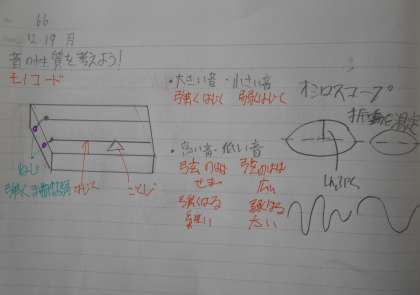 66
12.19 月
音の性質を考えよう!
モノコード
・大きい音・小さい音
強くはじく 弱くはじく
オシロスコープ
振動を測定
・高い音・低い音
弦のはば 弦のはば
せまい 広い
強くはる 弱くはる
細い 太い
ねじ
ことじ
しんぷく